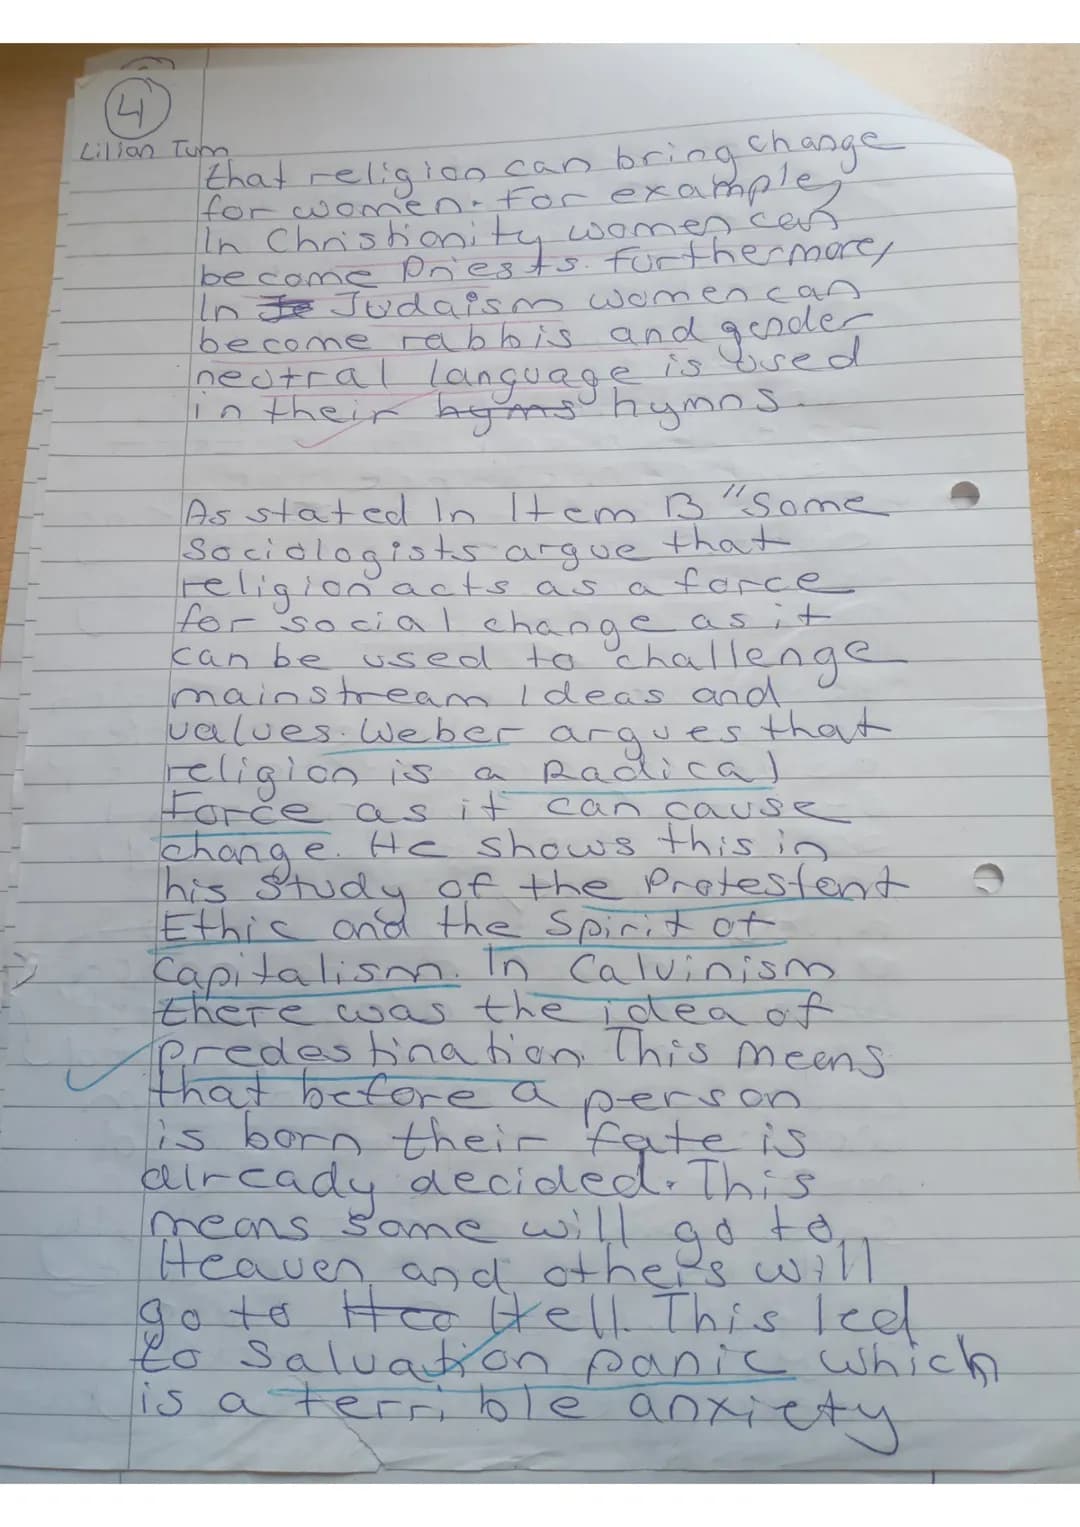 4
Lilian Tum
that religion can bring change
for women. For example,
In Christianity women can
become Priests. Furthermore,
In Je Judaism women can
become rabbis and gender
neutral language is used
in their hyms hymns.
As stated In Item B "Some
Sociologists argue that
religion acts as a force
for social change as it
can be used to challenge
mainstream Ideas and
values. Weber argues that
religion is a Radical
Force as it can cause
change. He shows this in
his study of the Protestent
Ethic and the Spirit of
Capitalism. In Calvinism
there was the idea of
predestination. This means
that before a person
is born their fate is
already decided. This
means some will go to
Heaven and others will
go to Hea Hell. This led
to Salvation panic which
is a terrible anxiety